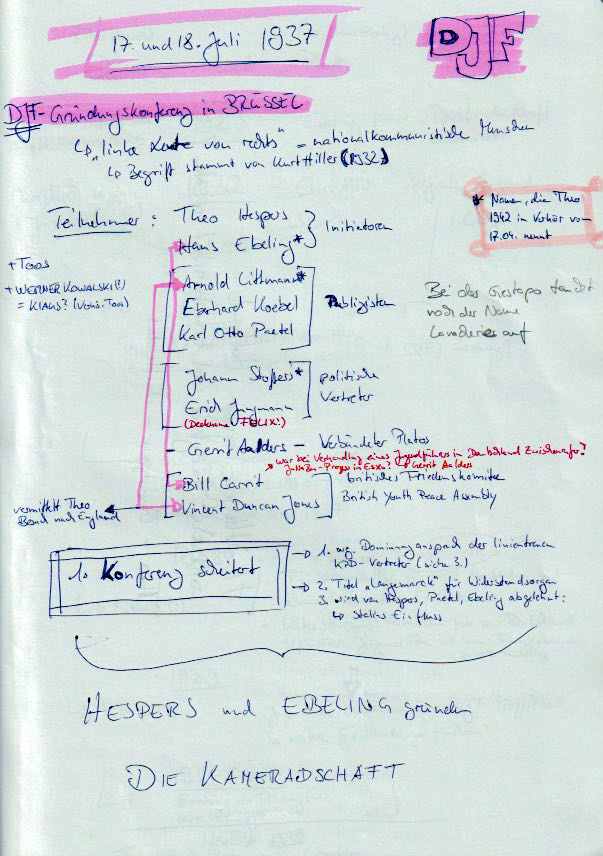 17. und 18. Juli 1937
DJF
DJF-Gründungskonferenz in BRÜSSEL
↳ „linke Leute von rechts" = nationalkommunistische Menschen
↳ Begriff stammt von Kurt Hiller (1932)
* Namen, die Theo
1942 in Verhör vom
17.04. nennt
Teilnehmer: Theo Hespers
Hans Ebeling*
Initiatoren
+ TOOS
+ WERNER KOWALSKI(?)
= KLAUS? (Verhör-Toos)
Arnold Littmann*
Eberhard Koebel
Karl Otto Paetel
Publizisten
Bei der Gestapo
noch der Name
auf
Johann Stoffers*
Erich Jungmann
(Deckname FELIX!)
politische
Vertreter
- Gerrit Aalders - Verbündeter Platos
war bei Verhandlung eines Jugendführers in Deutschland
Prozess in Essen? Gerrit Aalders
Bill Carrit
Vincent Duncan Jones
britisches Friedenskomitee
British Youth Peace Assembly
vermittelt Theo
nach England
1. Konferenz scheitert
→ 1. wg. Dominanzanspruch der linientreuen
KPD-Vertreter (siehe 3.)
→ 2. Titel „Langemarck" für Widerstandsorgan
3. wird von Hespers, Paetel, Ebeling abgelehnt:
↳ Stalins Einfluss
HESPERS und EBELING gründen
DIE KAMERADSCHAFT